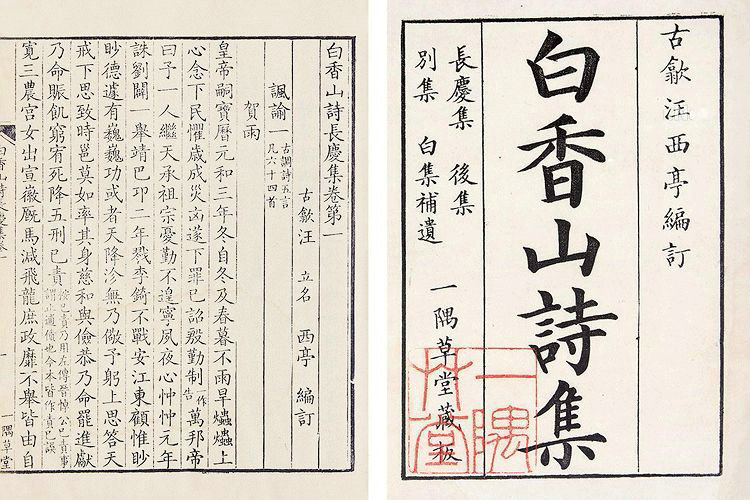 古歙汪西亭編訂
白香山詩集
長慶集 後集
別集 白集補遺
一隅草堂藏板
一隅草堂
白香山詩長慶集卷第一
古歙汪 立名 西亭 編訂
諷諭一 古調詩五言 凡六十四首
賀雨
皇帝嗣寶曆元和三年冬自冬及春暮不雨旱爞爞上
心念下民懼歲成災㐫遂下罪已詔殷勤制作告萬邦帝
曰予一人繼天承祖宗憂勤不遑寧夙夜心忡忡元年
誅劉闢一舉靖巴卭二年戮李錡不戰安江東顧惟眇
眇德遽有巍巍功或者天降沴無乃儆予躬上思答天
戒下思致時邕莫如率其身慈和與儉恭乃命罷進獻
乃命賑飢窮宥死降五刑已責 已責乃用左傳晉悼公已責事 也今本皆作責已誤
寛三農宮女出宣徽厩馬減飛龍庶政靡不舉皆由自
一隅草堂